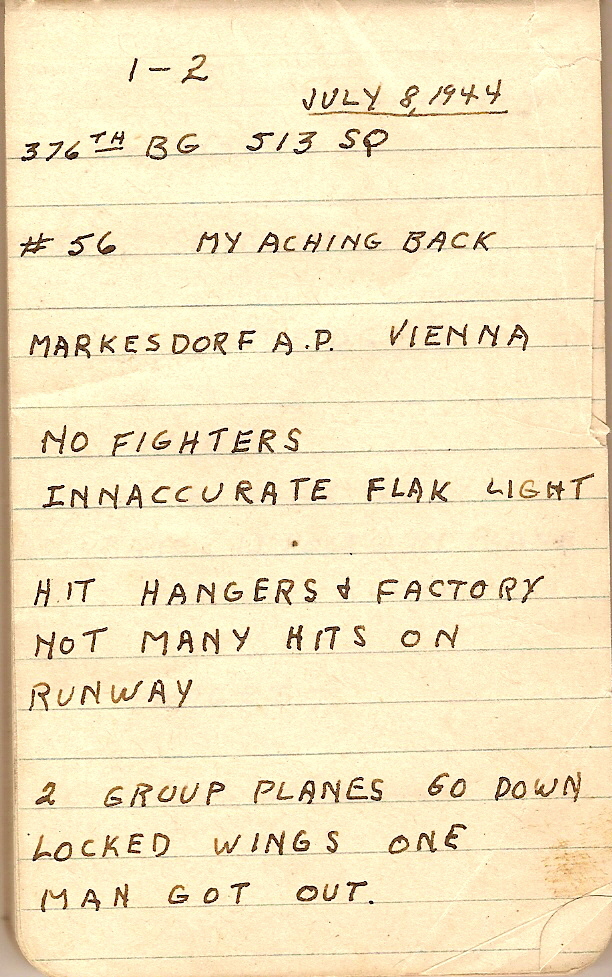 1-2
JULY 8, 1944
376TH BG 513 SQ
# 56 MY ACHING BACK
MARKESDORF A.P. VIENNA
NO FIGHTERS
INNACCURATE FLAK LIGHT
HIT HANGERS & FACTORY
NOT MANY HITS ON
RUNWAY
2 GROUP PLANES GO DOWN
LOCKED WINGS ONE
MAN GOT OUT.